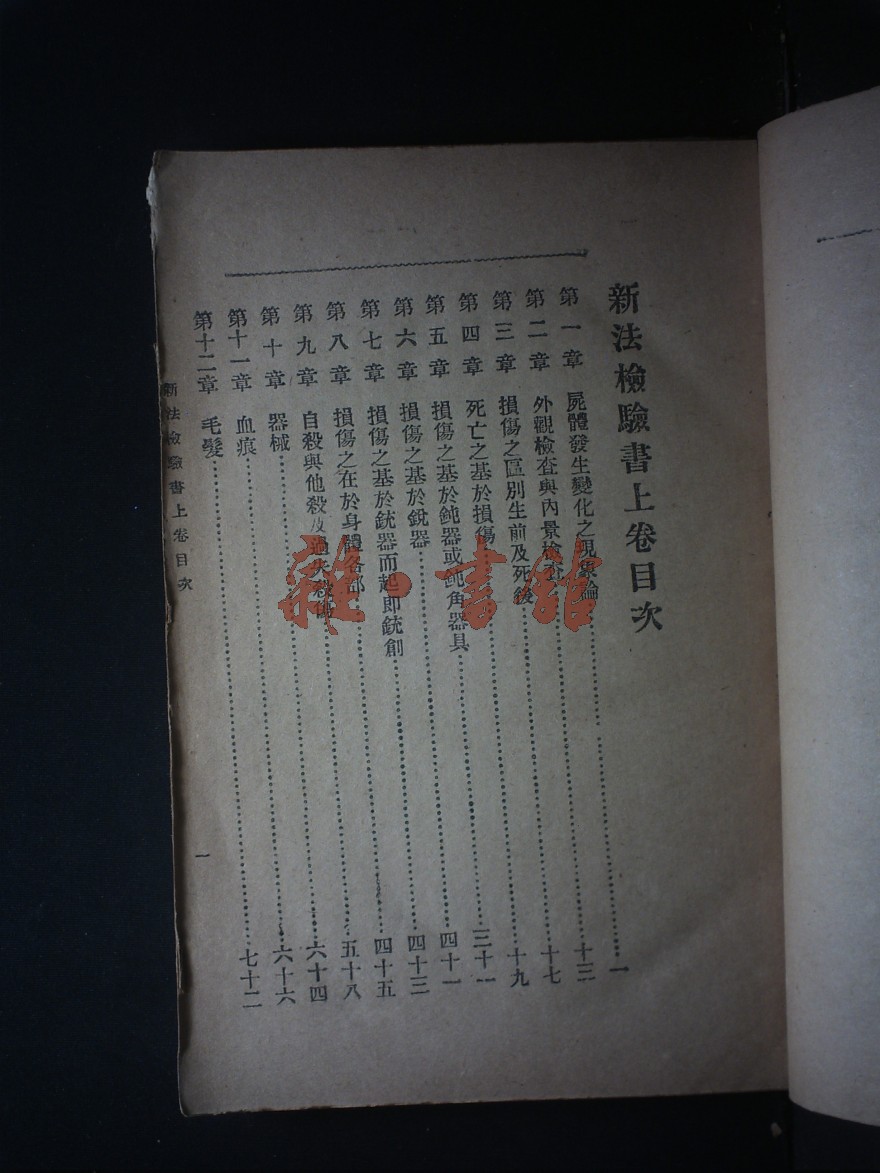 新法檢驗書上卷目次
第一章 屍體發生變化之現象論……一
第二章 外觀檢查與內景檢查……十三
第三章 損傷之區別生前及死後……十七
第四章 死亡之基於損傷……十九
第五章 損傷之基於鈍器或鈍角器具……三十一
第六章 損傷之基於銳器……四十一
第七章 損傷之基於銃器而起即銃創……四十三
第八章 損傷之在於身體各部……四十五
第九章 自殺與他殺及過失殺傷……五十八
第十章 器械……六十四
第十一章 血痕……六十六
第十二章 毛髮……七十二
新法檢驗書上卷目次
一
雜·書館